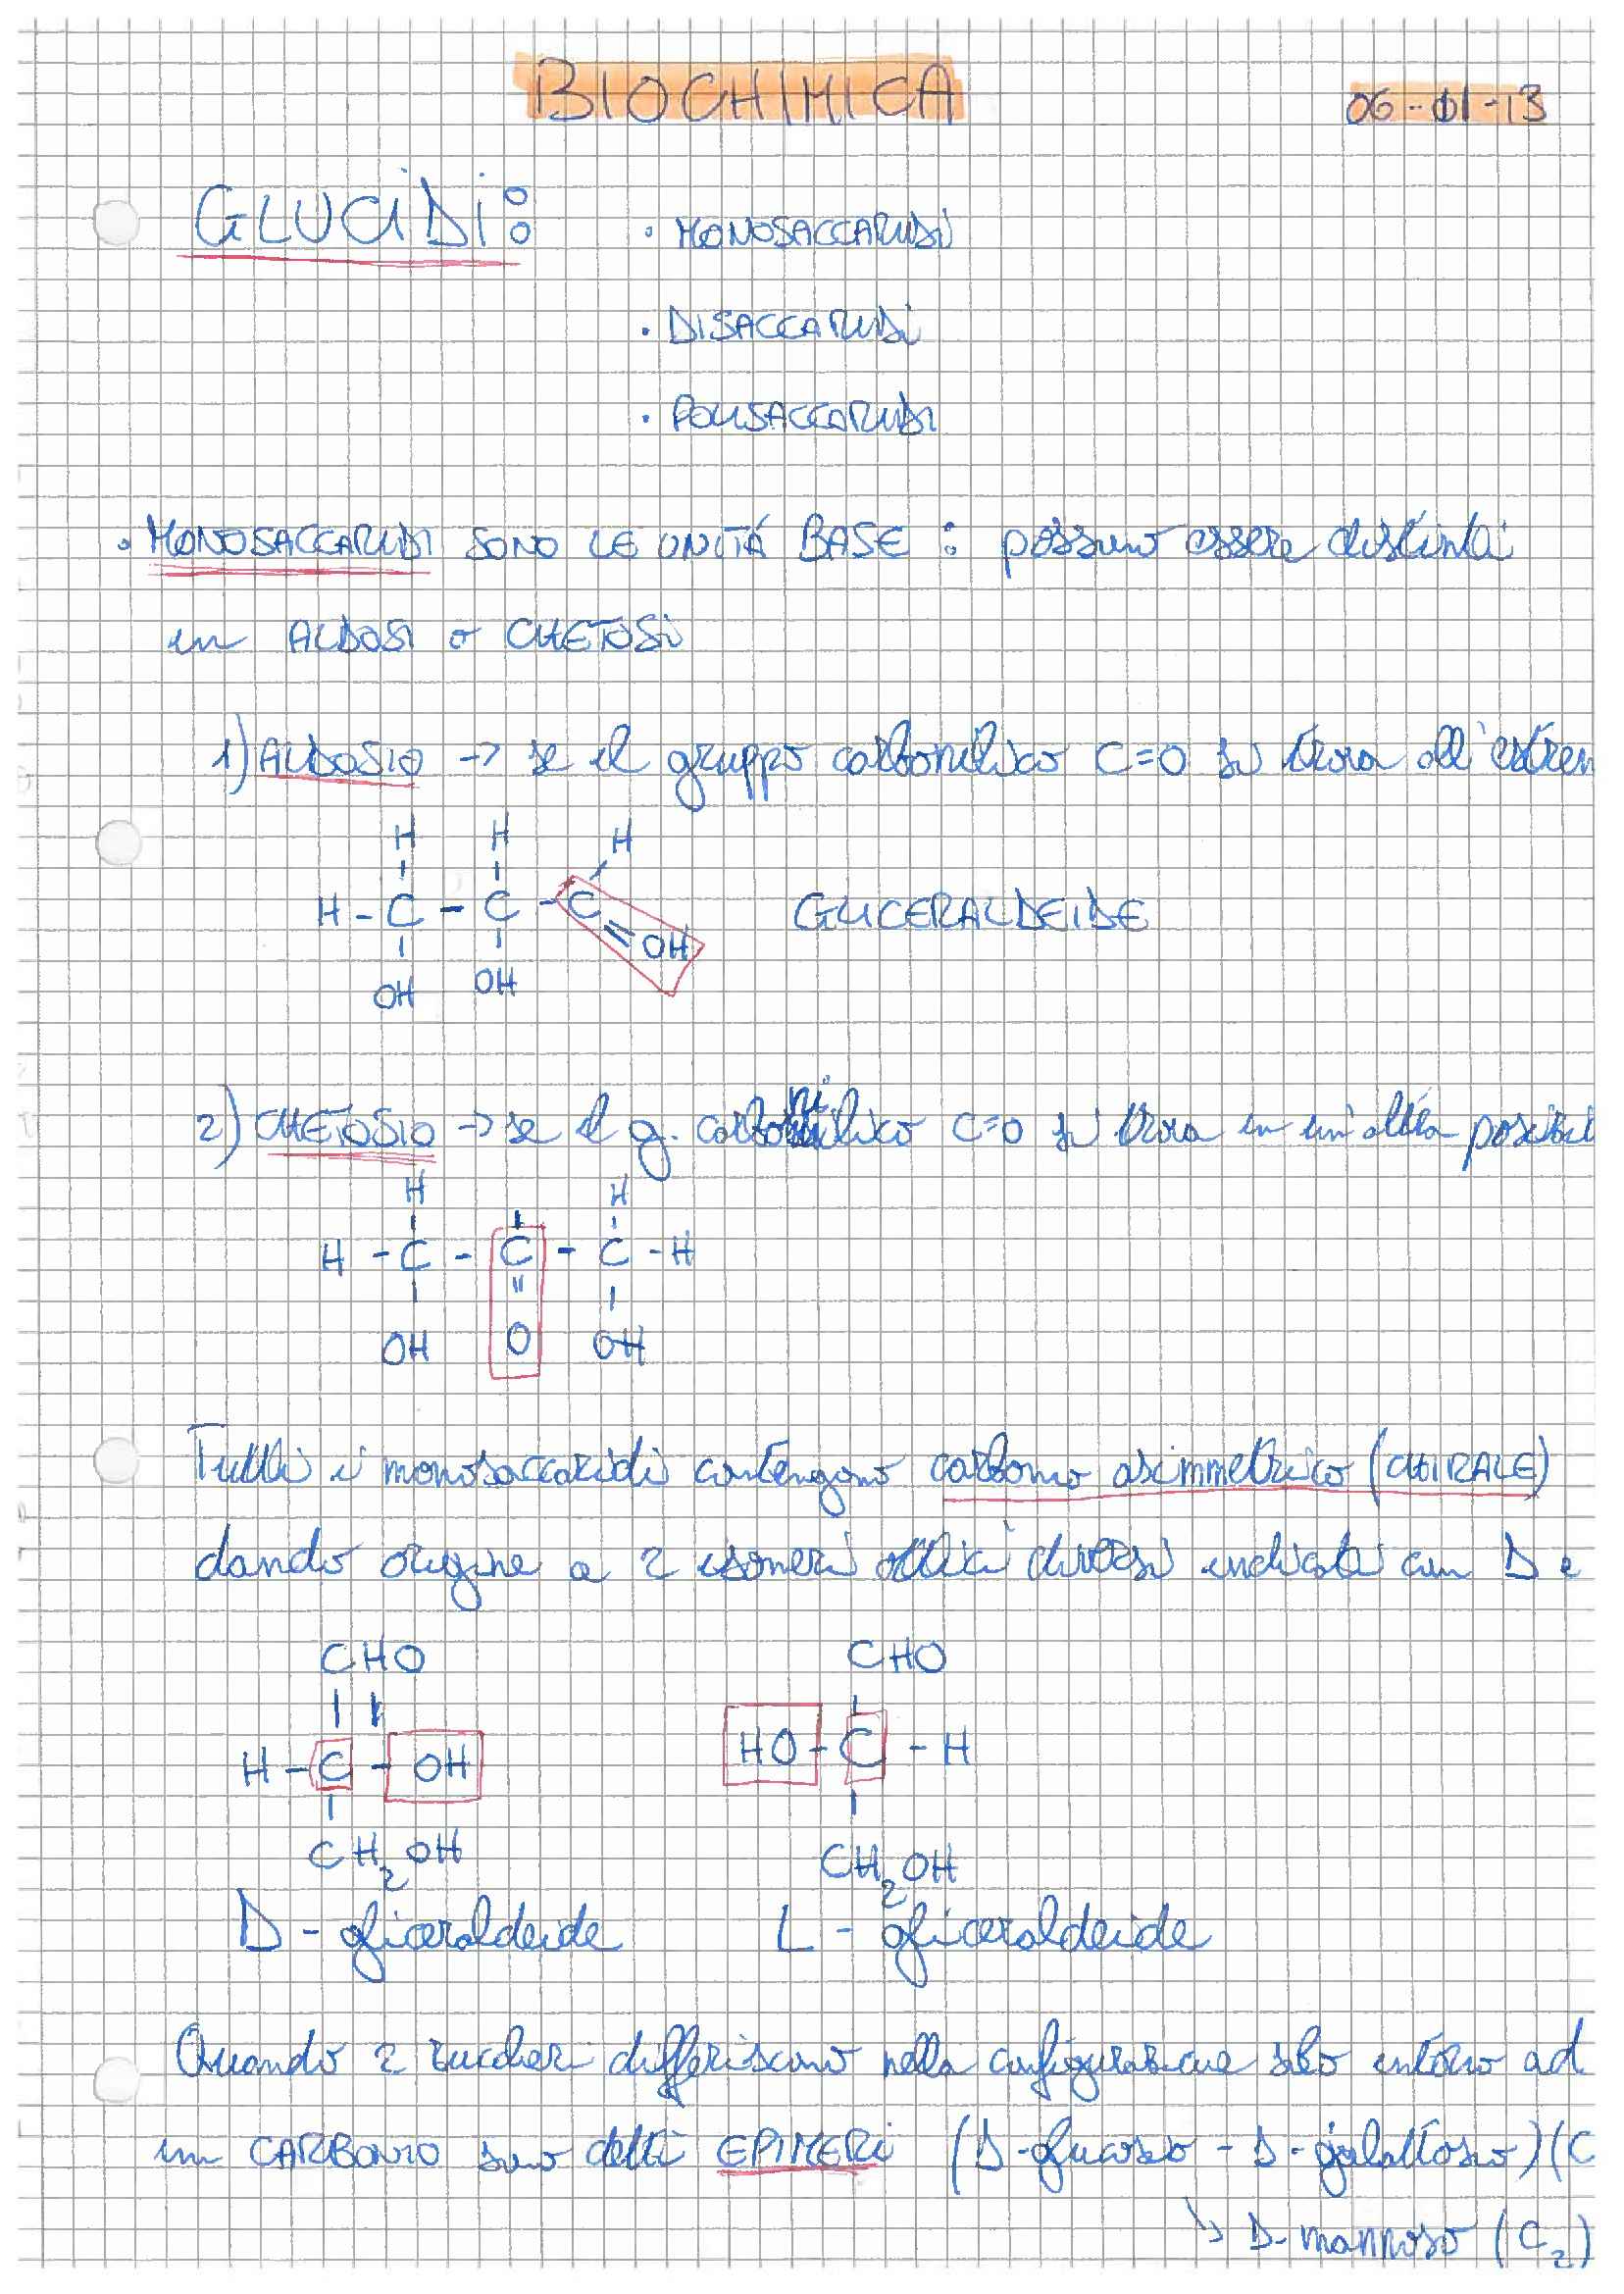 BIOCHIMICA 06-01-13
GLUCIDI:
· MONOSACCARIDI
· DISACCARIDI
· POLISACCARIDI
· MONOSACCARIDI SONO LE UNITÁ BASE : possono essere distinti
in ALDOSI o CHETOSI
1) ALDOSIO → se il gruppo carbonilico C=O si trova all'estrem
H H H
H - C - C - C
=OH
OH OH
GLICERALDEIDE
2) CHETOSIO → se il g. carbonilico C=O si trova in un'altra posizi
H H
H - C - C - C - H
OH O OH
Tutti i monosaccaridi contengono carbonio asimmetrico (CHIRALE)
dando origine a 2 isomeri ottici diversi indicati con D e
CHO CHO
H - C - OH HO - C - H
CH2OH CH2OH
D - gliceraldeide L - gliceraldeide
Quando 2 zuccheri differiscono nella configurazione solo intorno ad
un CARBONIO sono detti EPIMERI (D-glucosio - D-galattosio) (C
↳ D-mannosio (C2)